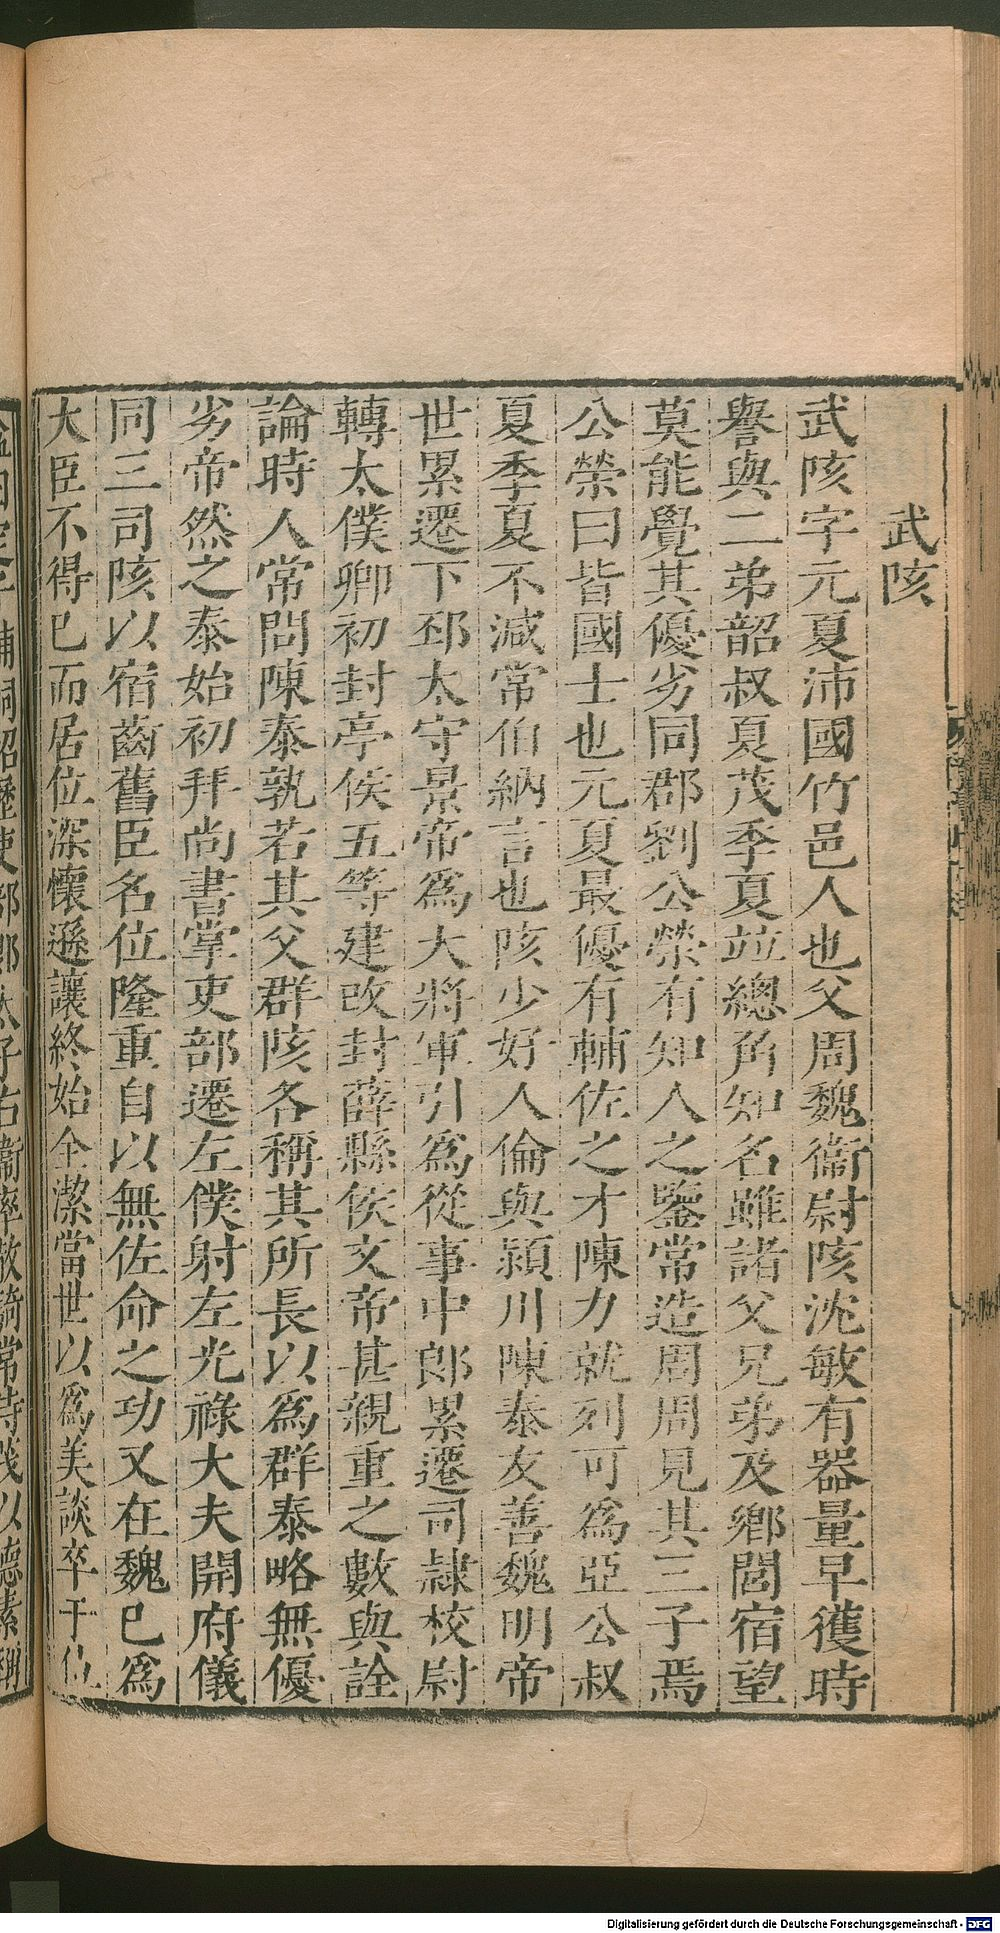 武陔
武陔字元夏沛國竹邑人也父周魏衞尉陔沈敏有器量早獲時
譽與二弟韶叔夏茂季夏竝總角知名雖諸父兄弟及鄉閭宿望
莫能覺其優劣同郡劉公榮有知人之鑒常造周周見其三子焉
公榮曰皆國士也元夏最優有輔佐之才陳力就列可爲亞公叔
夏季夏不減常伯納言也陔少好人倫與潁川陳泰友善魏明帝
世累遷下邳太守景帝爲大將軍引爲從事中郎累遷司隷校尉
轉太僕卿初封亭侯五等建改封薛縣侯文帝甚親重之數與詮
論時人常問陳泰孰若其父群陔各稱其所長以爲群泰略無優
劣帝然之泰始初拜尚書掌吏部遷左僕射左光祿大夫開府儀
同三司陔以宿齒舊臣名位隆重自以無佐命之功又在魏已爲
大臣不得已而居位深懷遜讓終始全潔當世以爲美談卒于位
Digitalisierung gefördert durch die Deutsche Forschungsgemeinschaft - DFG